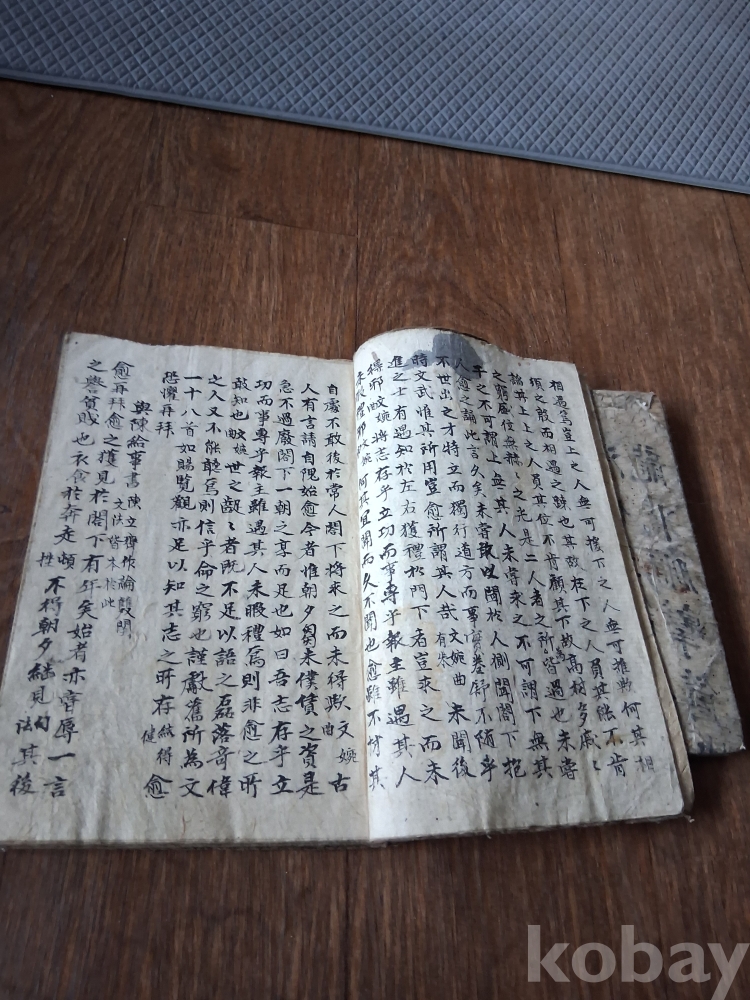 相遇焉豈上之人無可援下之人無可推歟何其相
須之殷而相遇之踈也其故在下之人負其能不肯
謟其上上之人負其位不肯顧其下故高材多戚〻
之窮盛位無赫〻之光是二人者之所為皆過也未嘗
干之不可謂上無其人未嘗求之不可謂下無其
人愈之誦此言久矣未嘗敢以聞於人側聞閤下抱
不世出之才特立而獨行道方而事實卷舒不隨乎
時文武惟其所用豈愈所謂其人哉 文婉曲 未聞後
進之士有遇知於左右獲禮於門下者豈求之而未
得邪 將志存乎立功而事專乎報主雖遇其人
未暇禮邪 何其宜聞而久不聞也愈雖不材其
自處不敢後於常人閤下將求之而未得歟 文婉曲 古
人有言請自隗始愈今者惟朝夕芻米僕賃之資是
急不過廢閤下一朝之享而足也如曰吾志存乎立
功而事專乎報主雖遇其人未暇禮焉則非愈之所
敢知也 世之齪〻者既不足以語之磊落奇偉
之人又不能聽焉則信乎命之窮也謹獻舊所為文
一十八首如賜覽觀亦足以知其志之所存 愈
恐懼再拜
與陳給事書
愈再拜愈之獲見於閤下有年矣始者亦嘗辱一言
之譽貧賤也衣食於奔走 不得朝夕繼見 其後